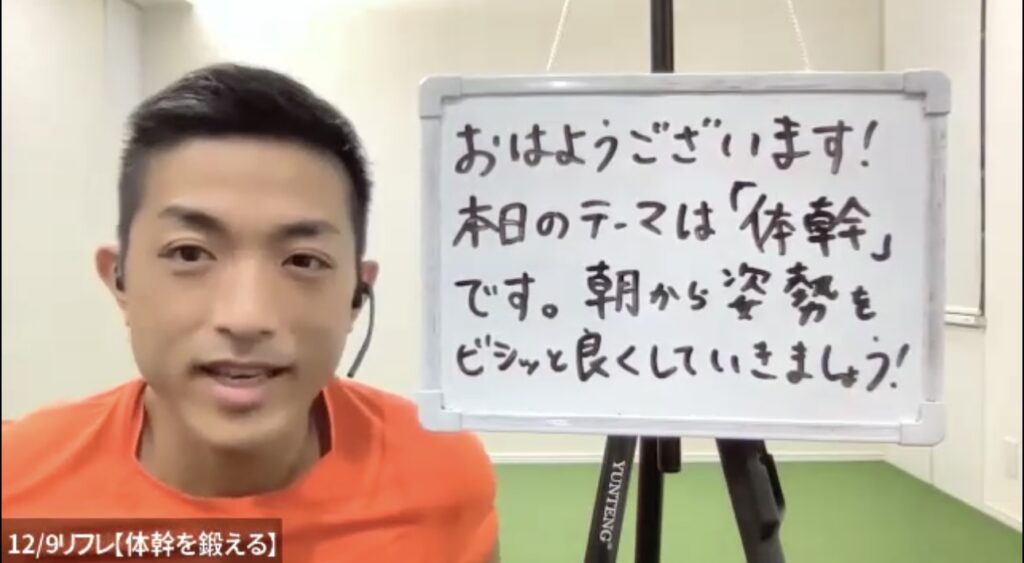 おはようございます!
本日のテーマは「体幹」
です。朝から姿勢を
ビシッと良くしていきましょう!
YUNTENG®
12/9リフレ【体幹を鍛える】